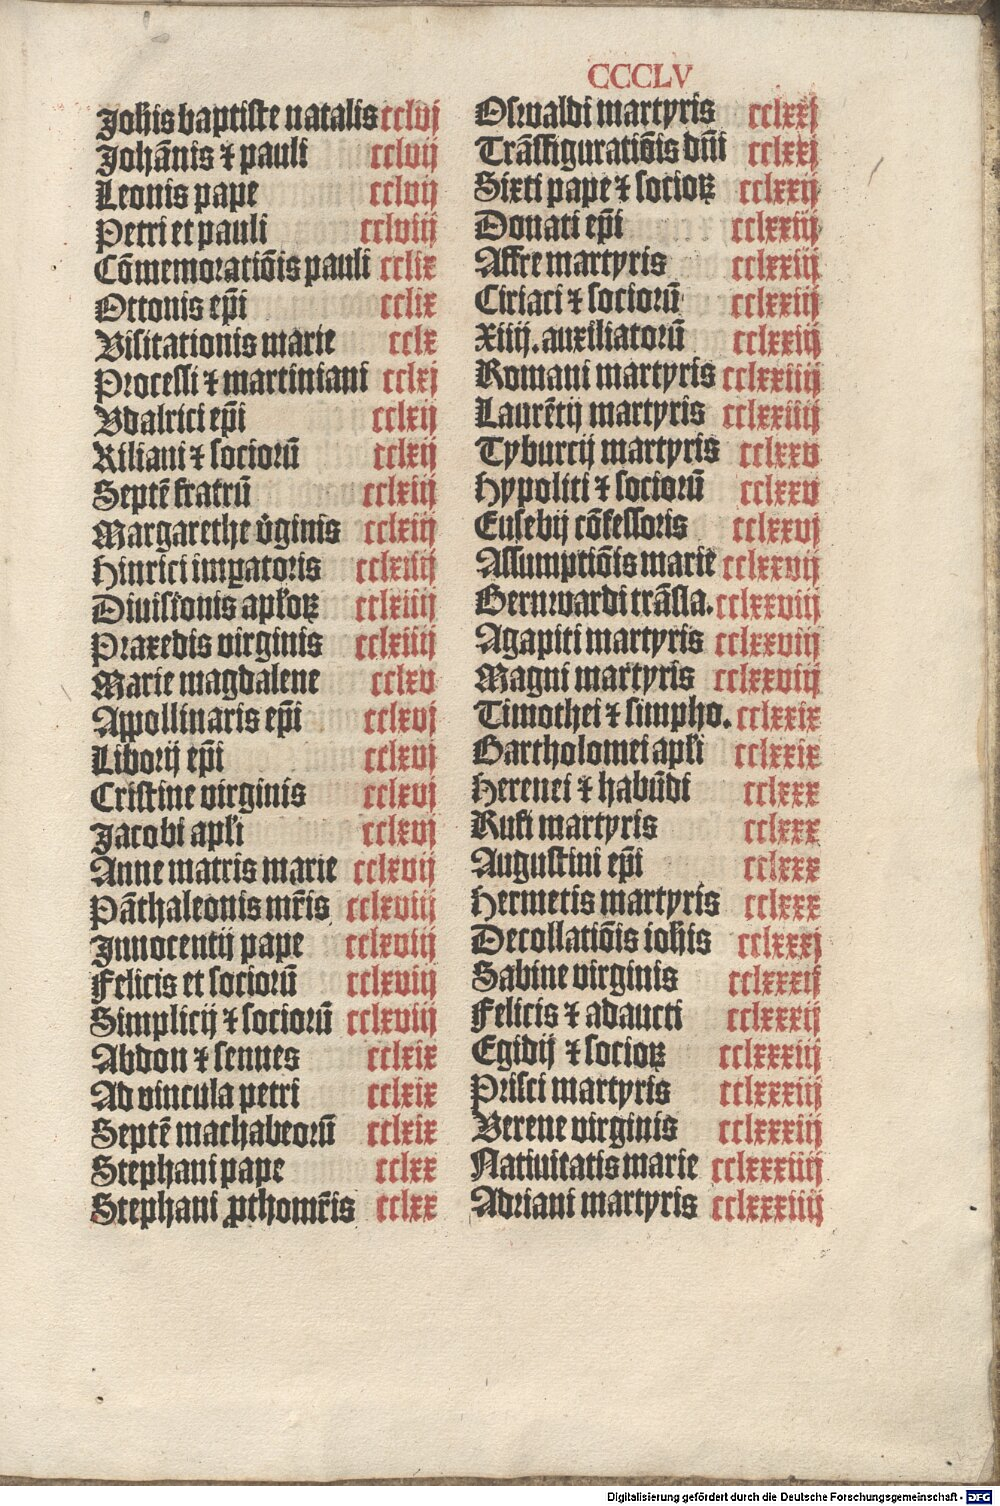 CCCLV
Joh̄is baptiste natalis cclvj
Johānis ⁊ pauli cclvij
Leonis pape cclvij
Petri et pauli cclviij
Cōmemoratiōis pauli cclix
Ottonis ep̄i cclix
Visitationis marie cclx
Processi ⁊ martiniani cclxj
Vdalrici ep̄i cclxij
Kiliani ⁊ socioꝝ̄ cclxij
Septē fratrū cclxiij
Margarethe v̓ginis cclxiij
Hinrici imꝑatoris cclxiiij
Diuisionis apl̄oꝝ cclxiiij
Praxedis virginis cclxiiij
Marie magdalene cclxv
Appollinaris ep̄i cclxvj
Liborij ep̄i cclxvj
Cristine virginis cclxvj
Jacobi apl̄i cclxvj
Anne matris marie cclxvij
Pāthaleonis mr̄is cclxviij
Innocentij pape cclxviij
Felicis et sociorū cclxviij
Simplicij ⁊ sociorū cclxviij
Abdon ⁊ sennes cclxix
Ad vincula petri cclxix
Septē machabeorū cclxix
Stephani pape cclxx
Stephani ꝓthomr̄is cclxx
Oswaldi martyris cclxxj
Trāsfiguratiōis dn̄i cclxxj
Sixti pape ⁊ socioꝝ cclxxij
Donati ep̄i cclxxiij
Affre martyris cclxxiij
Ciriaci ⁊ sociorū cclxxiij
Xiiij. auxiliatorū cclxxiij
Romani martyris cclxxiiij
Laurētij martyris cclxxiiij
Tyburcij martyris cclxxv
Hypoliti ⁊ sociorū cclxxv
Eusebij cōfessoris cclxxvj
Assumptiōis marie cclxxvij
Bernwardi trāsla. cclxxviij
Agapiti martyris cclxxviij
Magni martyris cclxxviij
Timothei ⁊ simpho. cclxxix
Bartholomei apl̄i cclxxix
Herenei ⁊ habūdi cclxxx
Rufi martyris cclxxx
Augustini ep̄i cclxxx
Hermetis martyris cclxxx
Decollatiōis ioh̄is cclxxxj
Sabine virginis cclxxxij
Felicis ⁊ adaucti cclxxxij
Egidij ⁊ socioꝝ cclxxxiij
Prisci martyris cclxxxiij
Verene virginis cclxxxiij
Natiuitatis marie cclxxxiiij
Adriani martyris cclxxxiiij
Digitalisierung gefördert durch die Deutsche Forschungsgemeinschaft - DFG